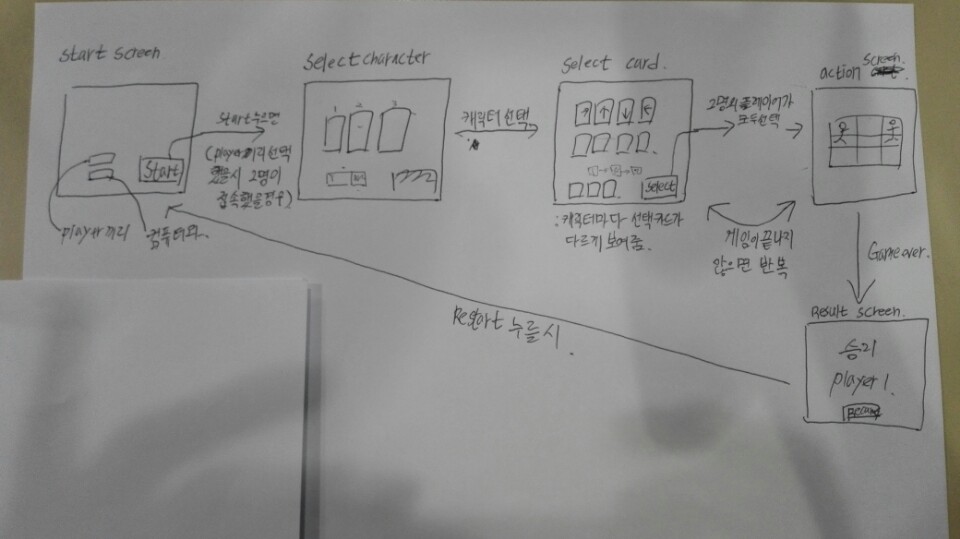 Start screen
Start 누르면
(player끼리 선택
했을시 2명이
접속했을경우)
Start
player끼리
컴퓨터와
Select character
1 2 3
캐릭터 선택
Select card.
↑ ↑ ↓ ←
select
:캐릭터마다 선택카드가
다르게 보여줌.
2명의 플레이어가
모두선택
게임이 끝나지
않으면 반복
action screen.
Game over.
Result screen.
승리
player 1.
Restart 누를시.